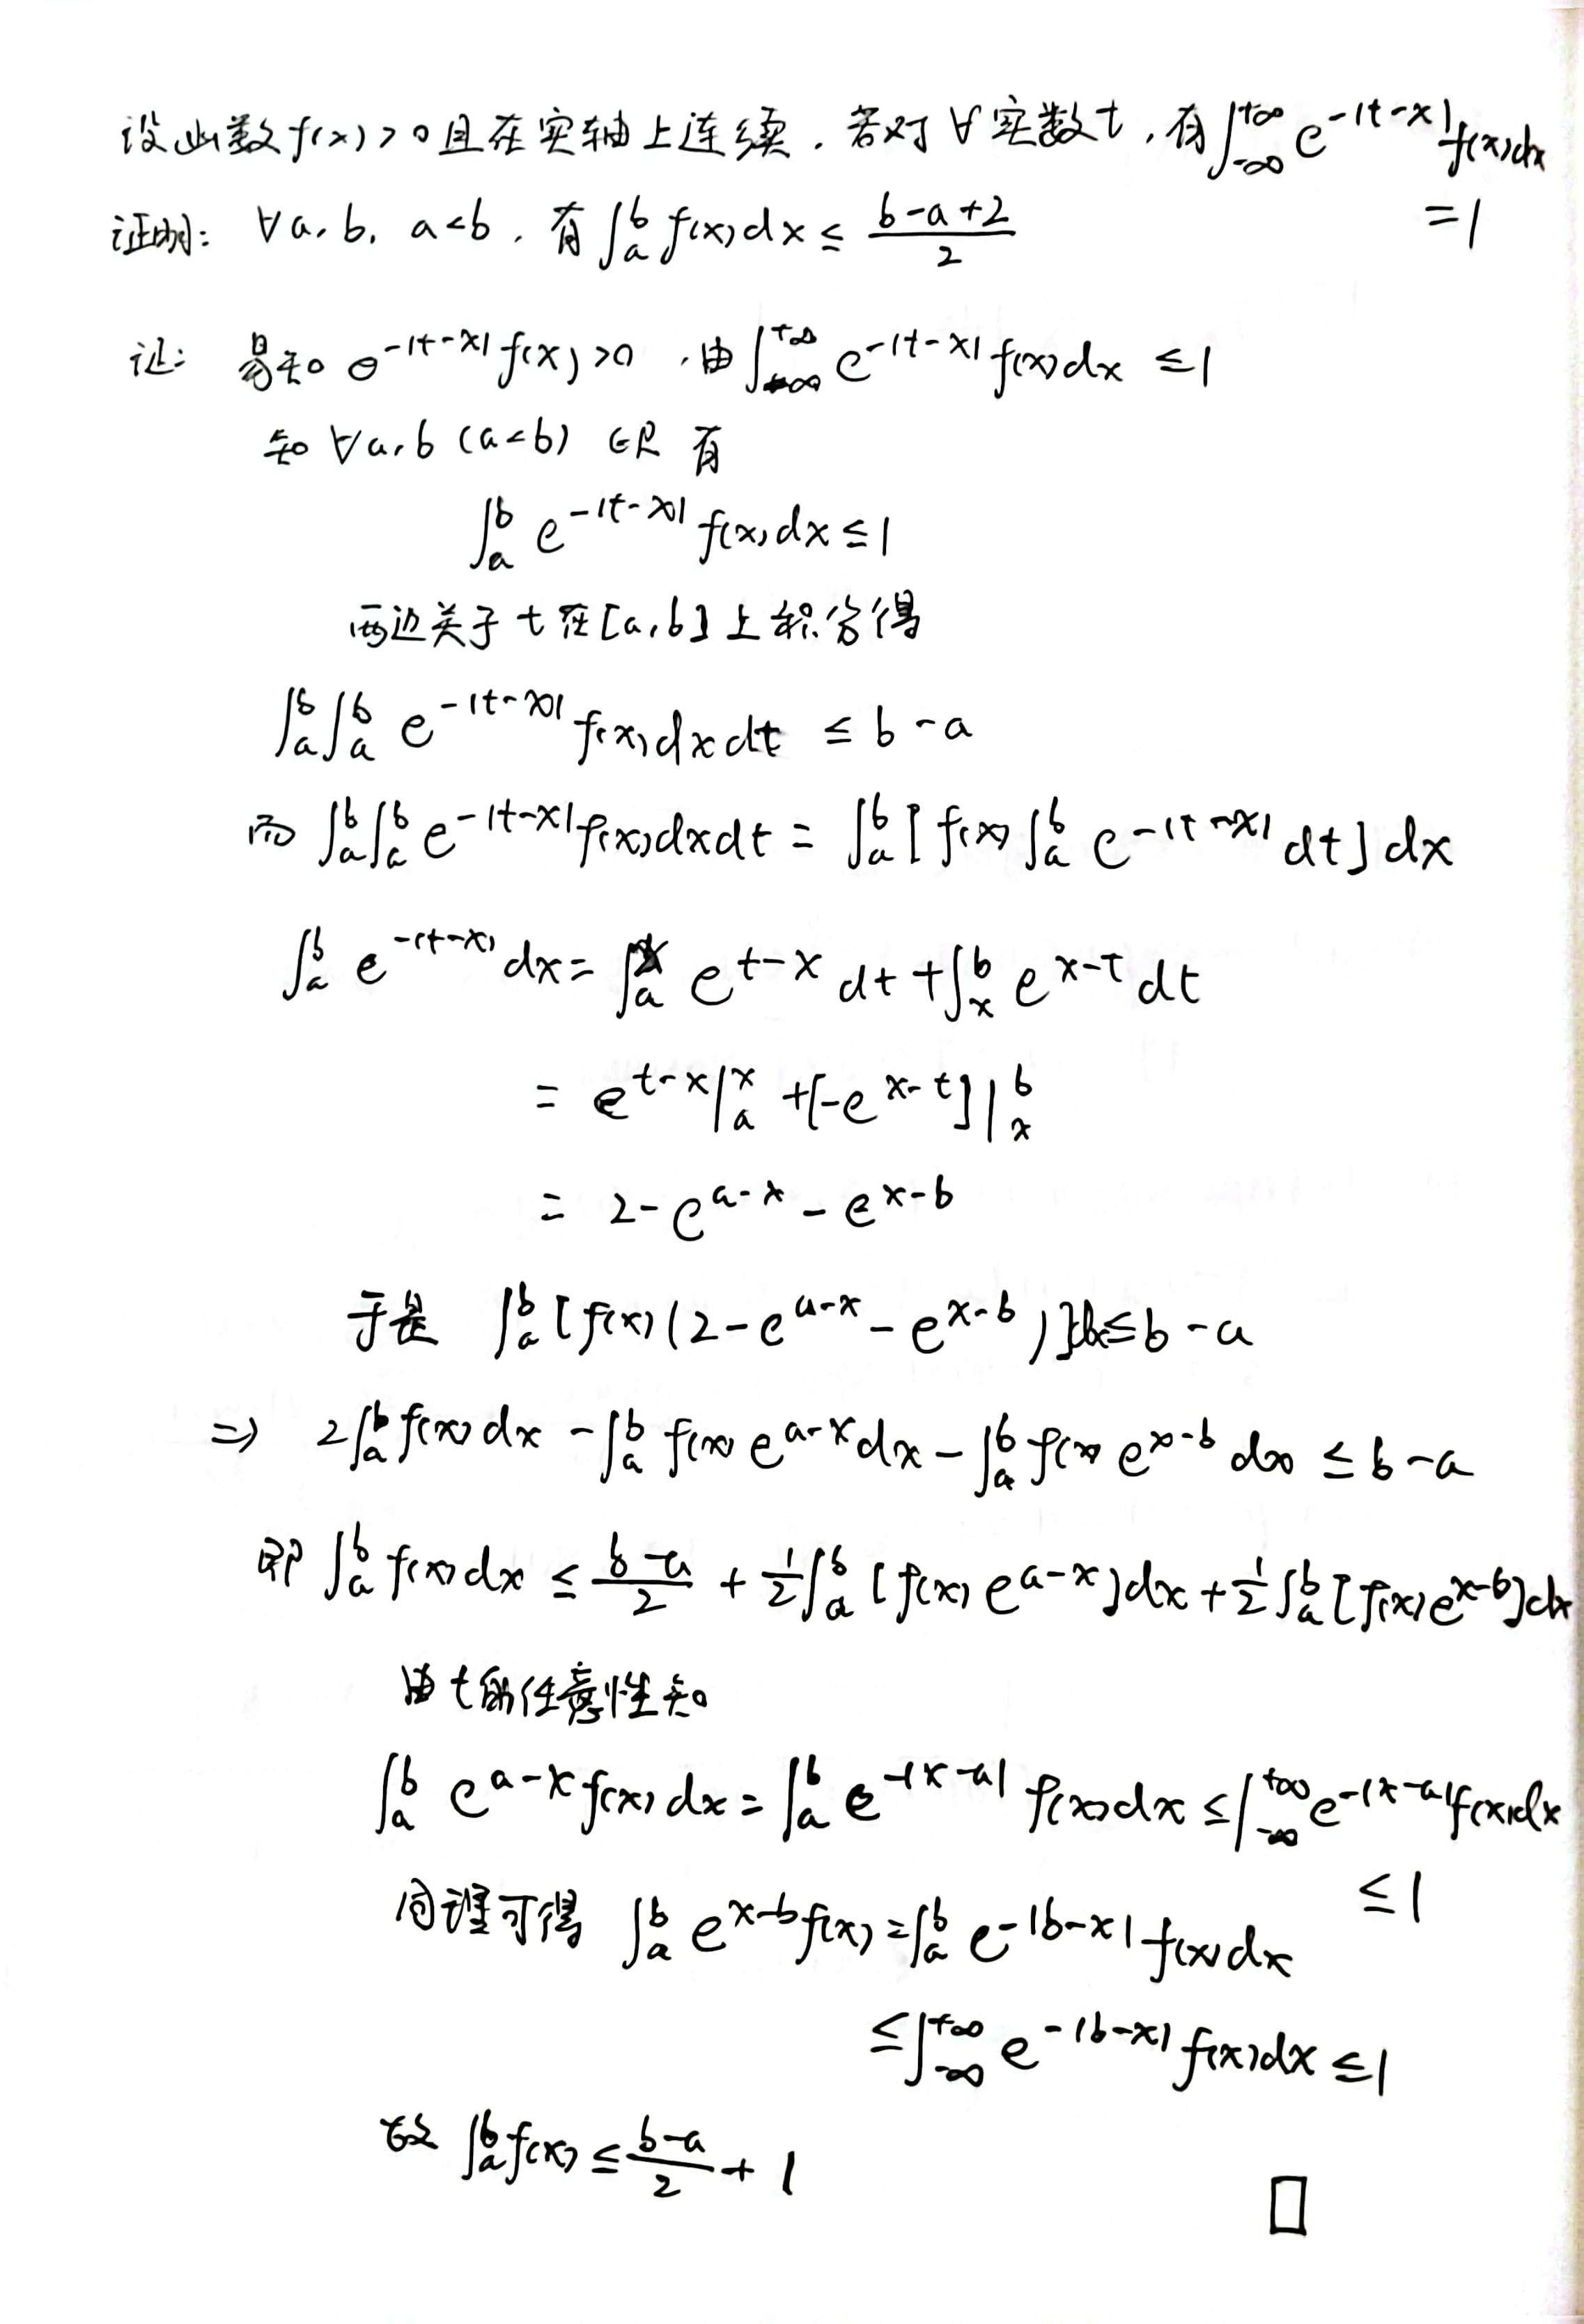 设函数f(x)>0且在实轴上连续．若对∀实数t，有∫_{-∞}^{+∞} e^{-|t-x|} f(x)dx
=1
证明：∀a,b, a<b，有∫_a^b f(x)dx ≤ \frac{b-a+2}{2}
证：易知 e^{-|t-x|} f(x)>0，由∫_{-∞}^{+∞} e^{-|t-x|} f(x)dx ≤1
知∀a,b (a<b) ∈R 有
∫_a^b e^{-|t-x|} f(x)dx ≤1
两边关于t在[a,b]上积分得
∫_a^b∫_a^b e^{-|t-x|} f(x)dxdt ≤ b-a
而 ∫_a^b∫_a^b e^{-|t-x|} f(x)dxdt = ∫_a^b [f(x)∫_a^b e^{-|t-x|} dt]dx
∫_a^b e^{-|t-x|} dx = ∫_a^x e^{t-x} dt + ∫_x^b e^{x-t} dt
= e^{t-x}|_a^x + [-e^{x-t}]|_x^b
= 2-e^{a-x} - e^{x-b}
于是 ∫_a^b [f(x)(2-e^{a-x} - e^{x-b})]dx ≤ b-a
⇒ 2∫_a^b f(x)dx - ∫_a^b f(x) e^{a-x} dx - ∫_a^b f(x) e^{x-b} dx ≤ b-a
即 ∫_a^b f(x)dx ≤ \frac{b-a}{2} + \frac{1}{2}∫_a^b [f(x) e^{a-x}]dx + \frac{1}{2}∫_a^b [f(x) e^{x-b}]dx
由t的任意性知
∫_a^b e^{a-x} f(x)dx = ∫_a^b e^{-|x-a|} f(x)dx ≤ ∫_{-∞}^{+∞} e^{-|x-a|} f(x)dx
≤1
同理可得 ∫_a^b e^{x-b} f(x) = ∫_a^b e^{-|b-x|} f(x)dx
≤ ∫_{-∞}^{+∞} e^{-|b-x|} f(x)dx ≤1
故 ∫_a^b f(x) ≤ \frac{b-a}{2} + 1
□